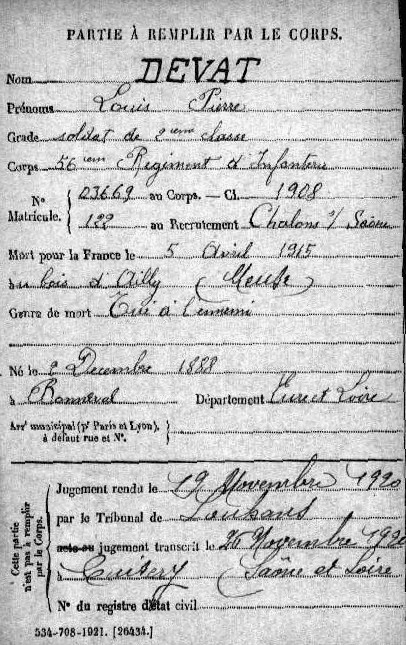 PARTIE À REMPLIR PAR LE CORPS.
Nom DEVAT
Prénoms Louis Pierre
Grade soldat de 2eme classe
Corps 56eme Régiment d'Infanterie
Nº Matricule. 03669 au Corps. — Cl. 1908
122 au Recrutement Chalons s/ Saône
Mort pour la France le 5 Avril 1915
au bois d'Ailly (Meuse)
Genre de mort Tué à l'ennemi
Né le 2 Décembre 1888
à Bonneval Département Eure et Loire
Arrt municipal (pr Paris et Lyon), à défaut rue et Nº.
Cette partie n'est pas à remplir par le Corps.
Jugement rendu le 19 Novembre 1920
par le Tribunal de Louhans
acte ou jugement transcrit le 26 Novembre 1920
à Cuisery Saône et Loire
Nº du registre d'état civil
534-708-1921. [26434.]